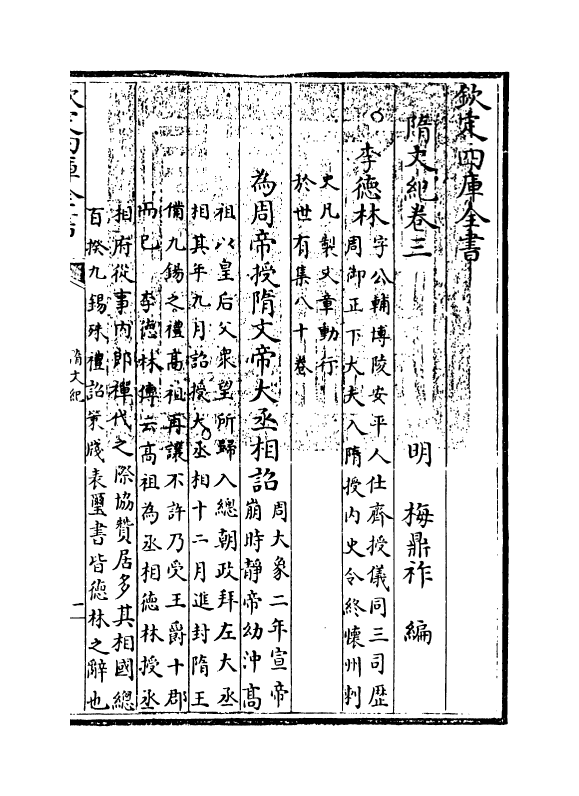 欽定四庫全書
隋文紀卷三
明　梅鼎祚　編
李德林字公輔博陵安平人仕齊授儀同三司歷
周御正下大夫入隋授内史令終懷州刺
史凡製文章動行
於世有集八十卷
為周帝授隋文帝大丞相詔周大象二年宣帝
崩時静帝幼沖高
祖以皇后父衆望所歸入總朝政拜左大丞
相其年九月詔授大丞相十二月進封隋王
備九錫之禮高祖再讓不許乃受王爵十郡
而已　李德林傳云高祖為丞相德林授丞
相府從事内郎禪代之際協贊居多其相國總
百揆九錫殊禮詔策牋表璽書皆德林之辭也
欽定四庫全書
隋文紀
二